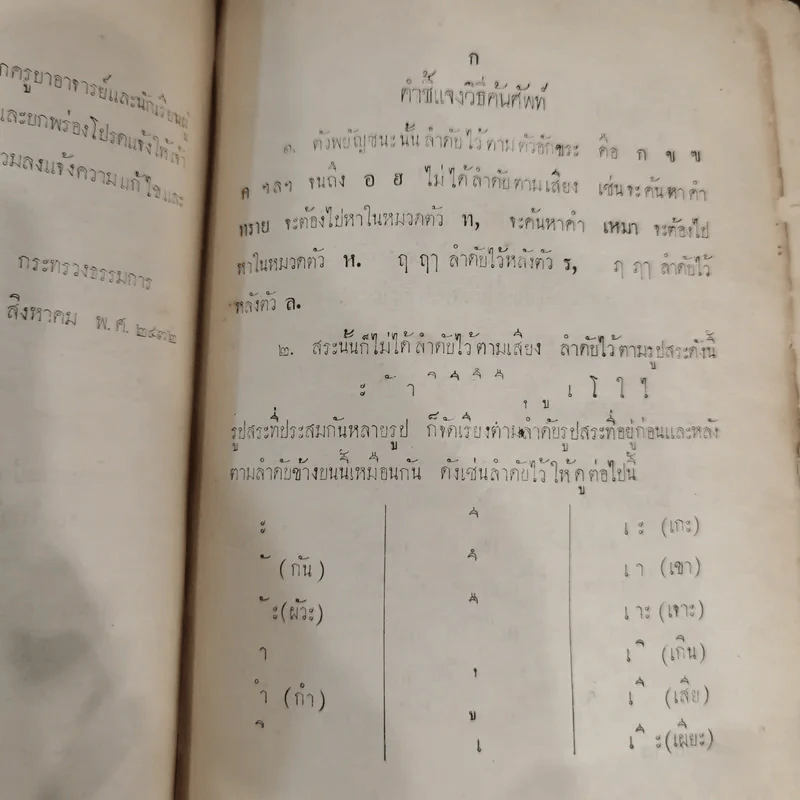 กครูบาอาจารย์และนักเรียนผู้
และยกพร่องโปรดแจ้งให้สำ
รวมลงแจ้งความแก้ไขและ
กระทรวงธรรมการ
สิงหาคม พ.ศ. ๒๔๗๒
ก
คำชี้แจงวิธีค้นศัพท์
๑. ตัวพยัญชนะนั้น ลำดับไว้ตามตัวอักขระ คือ ก ข ฃ
ค ฯลฯ จนถึง อ ฮ ไม่ได้ลำดับตามเสียง เช่นจะค้นหาคำ
ทราย จะต้องไปหาในหมวดตัว ท, จะค้นหาคำ เหมา จะต้องไป
หาในหมวดตัว ห. ฤ ฤๅ ลำดับไว้หลังตัว ร, ฦ ฦๅ ลำดับไว้
หลังตัว ล.
๒. สระนั้นก็ไม่ได้ลำดับไว้ตามเสียง ลำดับไว้ตามรูปสระดังนี้
ะ ั า ิ ี ึ ื ุ ู เ โ ใ ไ
รูปสระที่ประสมกันหลายรูป ก็จัดเรียงตามลำดับรูปสระที่อยู่ก่อนและหลัง
ตามลำดับข้างบนนี้เหมือนกัน ดังเช่นลำดับไว้ให้ดูต่อไปนี้
ะ ี เ ะ (เกะ)
ั (กัน) ึ เ า (เขา)
ัะ (ผัวะ) ื เ าะ (เจาะ)
า เ ิ (เกิน)
ำ (กำ) ุ เ ี (เสีย)
ิ ู เ ี ะ (เผียะ)
เ